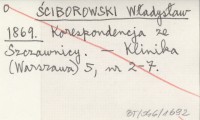 ŚCIBOROWSKI Władysław
1869. Korespondencja ze
Szczawnicy. — Klinika
(Warszawa) 5, nr 2-7.
BJ/566/1692